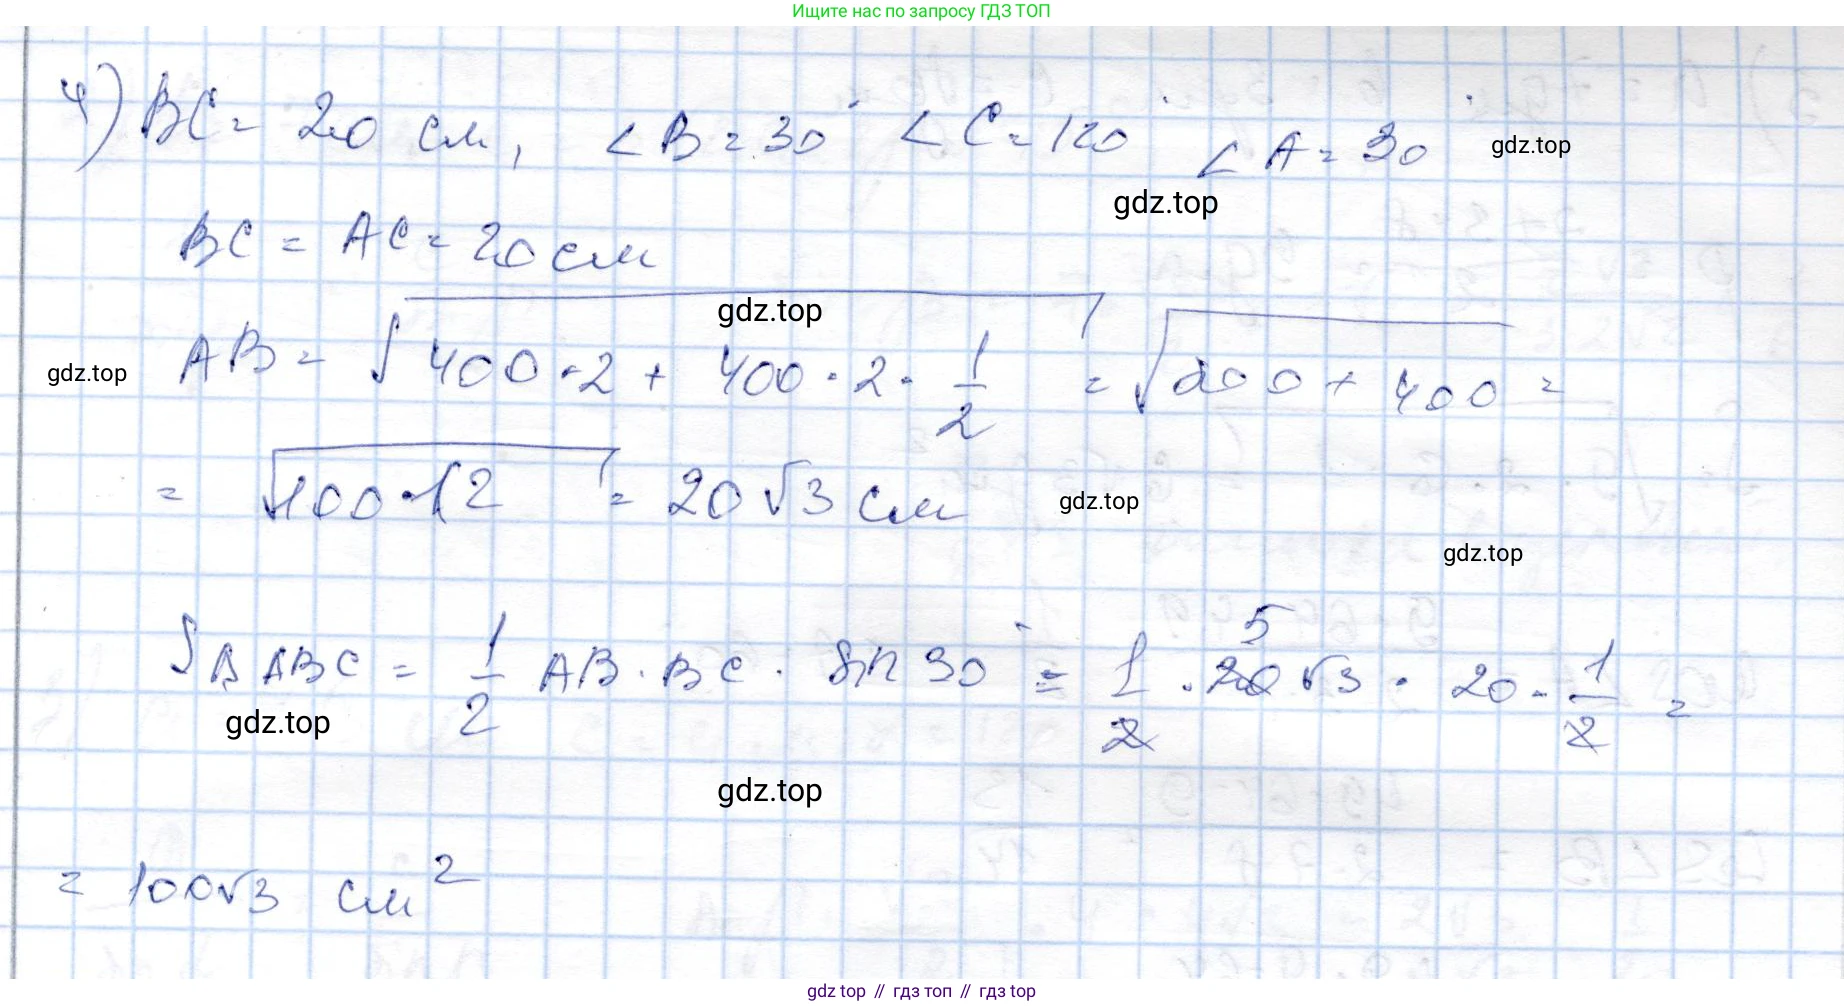 Ищите нас по запросу ГДЗ ТОП
4) BC = 20 см, ∠B = 30° ∠C = 120° ∠A = 30°
gdz.top
gdz.top
BC = AC = 20 см
gdz.top
AB = √400·2 + 400·2·1/2 = √800 + 400 =
gdz.top
= √100·12 = 20√3 см
gdz.top
gdz.top
S△ABC = 1/2 AB · BC · sin 30° = 1/2 · 20 5 √3 · 20 · 1/2 =
gdz.top
gdz.top
= 100√3 см²
gdz top // гдз топ // гдз top